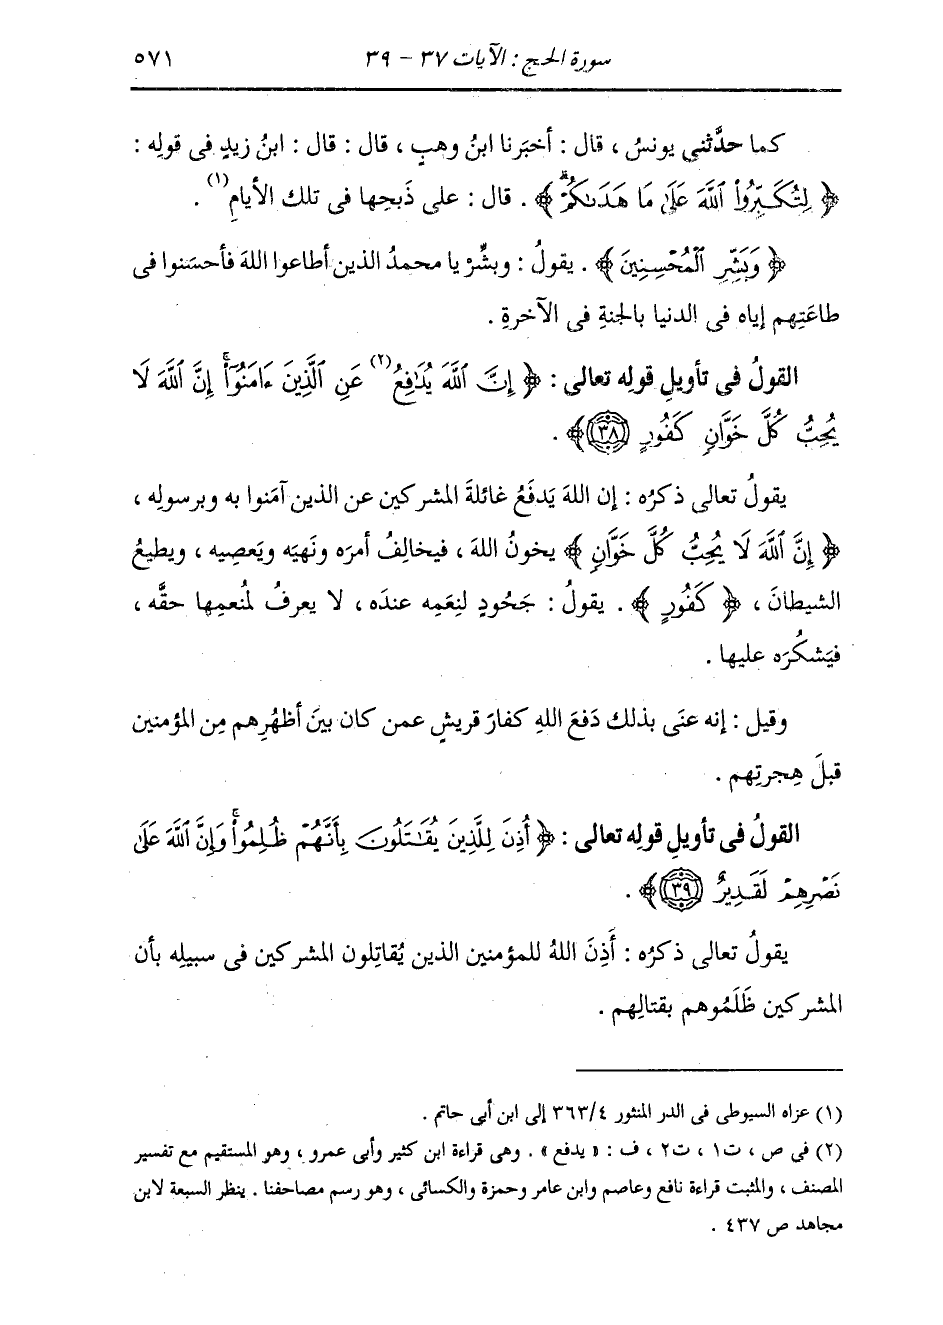 سورة الحج : الآيات ٣٧ - ٣٩ ٥٧١
كما حدَّثني يونسُ ، قال : أخبَرنا ابنُ وهبٍ ، قال : قال : ابنُ زيدٍ فى قولِه :
﴿ لِتُكَبِّرُواْ ٱللَّهَ عَلَىٰ مَا هَدَىٰكُمْۗ ﴾ . قال : على ذَبحِها فى تلك الأيامِ(١) .
﴿ وَبَشِّرِ ٱلْمُحْسِنِينَ ﴾ . يقولُ : وبشِّرْ يا محمدُ الذين أطاعوا اللهَ فأحسَنوا فى
طاعَتِهم إياه فى الدنيا بالجنةِ فى الآخرةِ .
القولُ فى تأويلِ قولِه تعالى : ﴿ إِنَّ ٱللَّهَ يُدَٰفِعُ(٢) عَنِ ٱلَّذِينَ ءَامَنُوٓاْۗ إِنَّ ٱللَّهَ لَا
يُحِبُّ كُلَّ خَوَّانٍ كَفُورٍ ٣٨ ﴾ .
يقولُ تعالى ذكرُه : إن اللهَ يَدفَعُ غائلةَ المشركين عن الذين آمَنوا به وبرسولِه ،
﴿ إِنَّ ٱللَّهَ لَا يُحِبُّ كُلَّ خَوَّانٍ ﴾ يخونُ اللهَ ، فيخالِفُ أمرَه ونَهيَه ويَعصِيه ، ويطيعُ
الشيطانَ ، ﴿ كَفُورٍ ﴾ . يقولُ : جَحُودٍ لنِعَمِه عندَه ، لا يعرفُ لمُنعمِها حقَّه ،
فيَشكُرَه عليها .
وقيل : إنه عنَى بذلك دَفعَ اللهِ كفارَ قريشٍ عمن كان بينَ أظهُرِهم مِن المؤمنين
قبلَ هِجرتِهم .
القولُ فى تأويلِ قولِه تعالى : ﴿ أُذِنَ لِلَّذِينَ يُقَٰتَلُونَ بِأَنَّهُمْ ظُلِمُواْۚ وَإِنَّ ٱللَّهَ عَلَىٰ
نَصْرِهِمْ لَقَدِيرٌ ٣٩ ﴾ .
يقولُ تعالى ذكرُه : أَذِنَ اللهُ للمؤمنين الذين يُقاتِلون المشركين فى سبيلِه بأن
المشركين ظَلَمُوهم بقتالِهم .
(١) عزاه السيوطى فى الدر المنثور ٣٦٣/٤ إلى ابن أبى حاتم .
(٢) فى ص ، ت١ ، ت٢ ، ف : « يدفع » . وهى قراءة ابن كثير وأبى عمرو ، وهو المستقيم مع تفسير
المصنف ، والمثبت قراءة نافع وعاصم وابن عامر وحمزة والكسائى ، وهو رسم مصاحفنا . ينظر السبعة لابن
مجاهد ص ٤٣٧ .